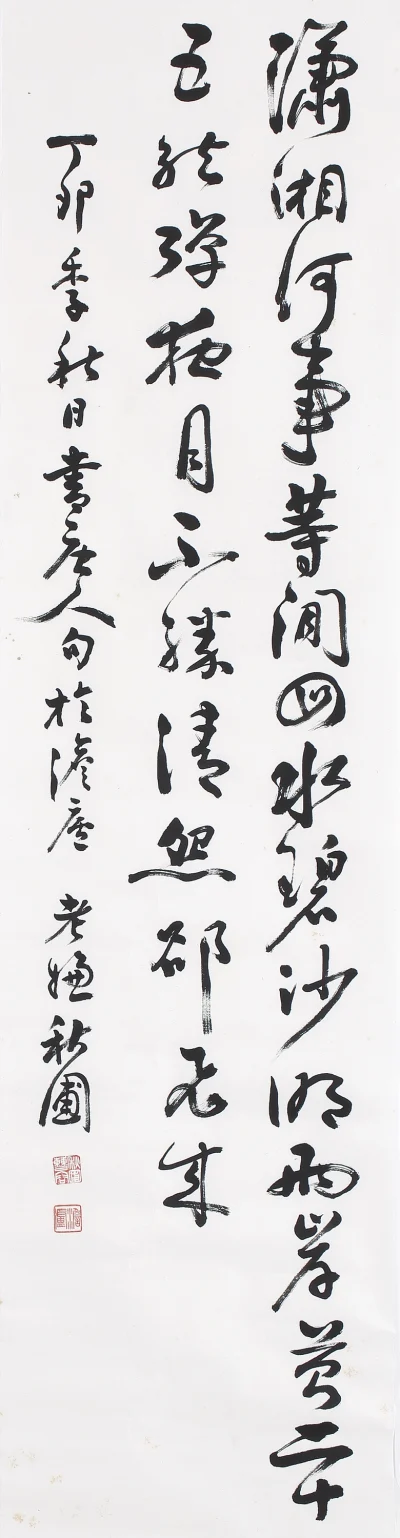 瀟湘何事等閒回水碧沙明兩岸苔二十
五絃彈夜月不勝清怨卻飛來
丁卯季秋日書唐人句於澹廬 老嫌秋圃